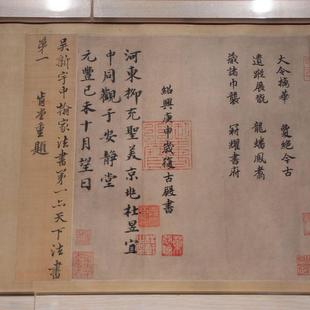 大令摛華 夐絕今古
遺蹤展玩 龍蟠鳳翥
藏諸巾襲 冠耀書府
紹興庚申歲復古殿書
河東柳充聖美京兆杜昱宜
中同觀于安靜堂
元豐己未十月望日
吳新宇中翰家法書第一亦天下法書
第一 肯堂重題